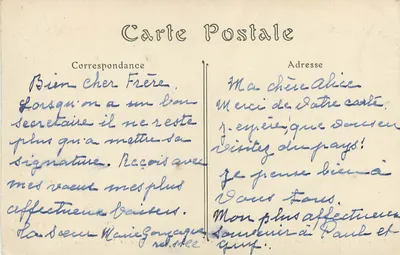 Carte Postale
Correspondance
Bien cher Frère,
Lorsqu'on a un bon
secrétaire il ne reste
plus qu'a mettre sa
signature. Reçois avec
mes vœux mes plus
affectueux baisers.
Ta sœur Marie Gonzague
Adresse
Ma chère Alice
Merci de votre carte,
j'espère que
visitez du pays!
Je pense bien à
vous tous.
Mon plus affectueux
souvenir à Paul et
Guy.